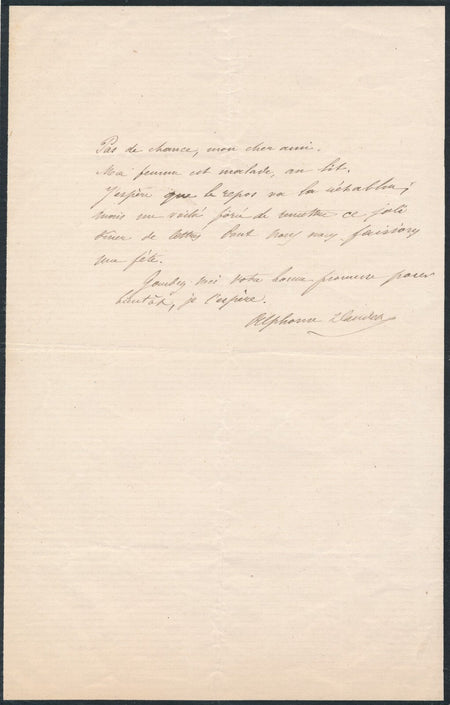 Pas de chance, mon cher ami.
Ma femme est malade, au lit.
J'espère que le repos va la rétablir;
mais me voilà forcé de remettre ce joli
dîner de lettrés dont nous nous faisions
une fête.
Gardez moi votre bonne promesse pour
bientôt, je l'espère.
Alphonse Daudet